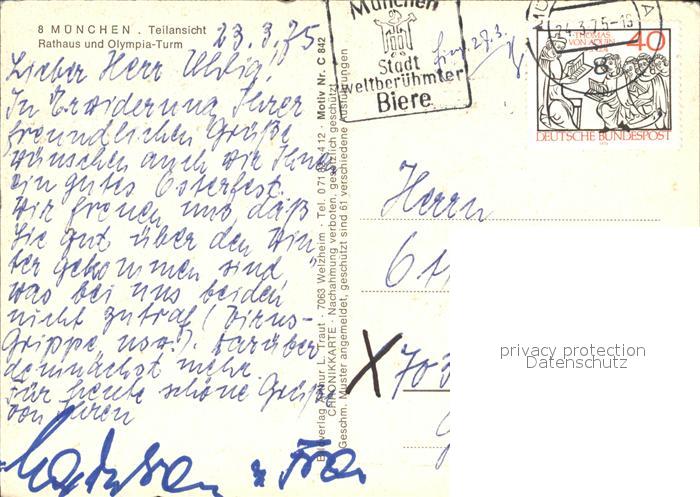 8 MÜNCHEN . Teilansicht
Rathaus und Olympia-Turm
23.3.75
Lieber Herr Uhlig!
In Erwiderung Ihrer
freundlichen Grüße
wünschen auch wir Ihnen
ein gutes Osterfest.
Wir freuen uns daß
Sie gut über den Win-
ter gekommen sind
was bei uns beiden
nicht zutraf (Virus-
Grippe usw.). Darüber
demnächst mehr
Für heute schöne Grüße
von Ihren
u. Frau
Bildverlag Arthur L. Traut · 7063 Welzheim · Tel. 071 412 · Motiv Nr. C 842
CHRONIKKARTE · Nachahmung verboten, gesetzlich geschützt
Geschm. Muster angemeldet, geschützt sind 61 verschiedene Ausführungen
München
Stadt
weltberühmter
Biere
27.3.
24.3.75-18
8
THOMAS
VON AQUIN
40
DEUTSCHE BUNDESPOST
Herrn
privacy protection
Datenschutz